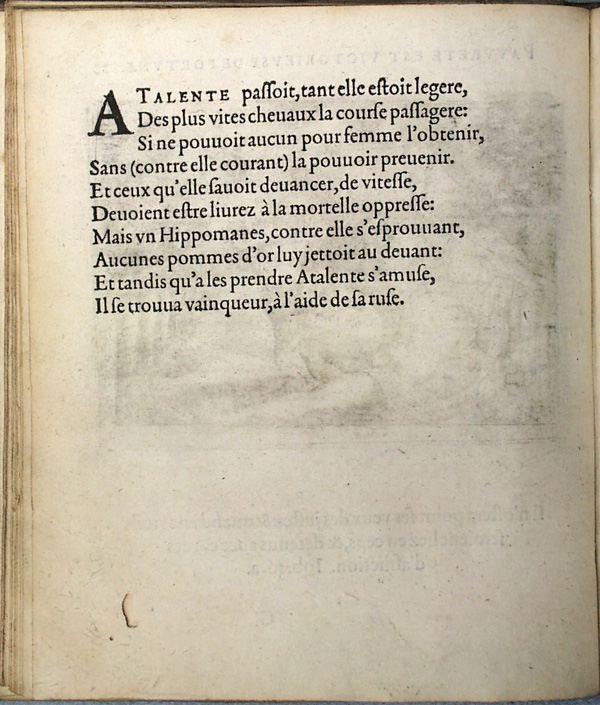 ATALENTE paſſoit, tant elle eſtoit legere,
Des plus vites cheuaux la courſe paſſagere:
Si ne pouuoit aucun pour femme l'obtenir,
Sans (contre elle courant) la pouuoir preuenir.
Et ceux qu'elle ſauoit deuancer, de viteſſe,
Deuoient eſtre liurez à la mortelle oppreſſe:
Mais vn Hippomanes, contre elle s'eſprouuant,
Aucunes pommes d'or luy jettoit au deuant:
Et tandis qu'a les prendre Atalente s'amuſe,
Il ſe trouua vainqueur, à l'aide de ſa ruſe.